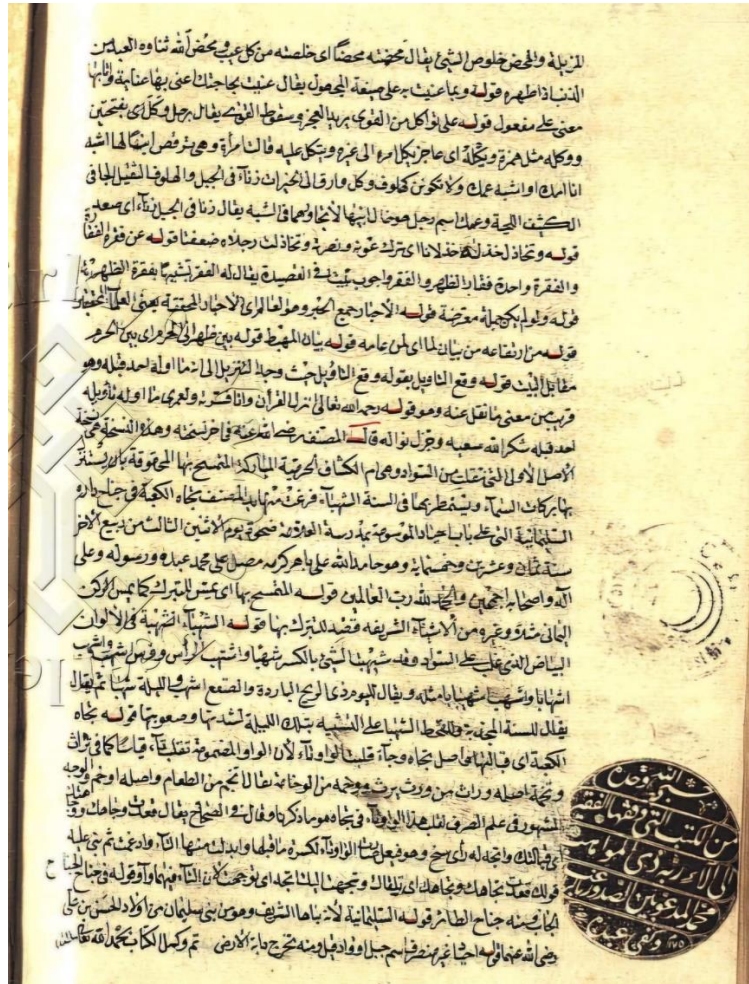 المزيلة والمحض خلوص الشيئ يقال محضته محضاً اى خلصته من كل عيب ومحض الله ثناوه العبد من
الذنب اذا طهره قوله وبما عنيت به على صيغة المجهول يقال عنيت بحاجتك اعنى بها عناية
معنى على مفعول قوله على تواكل من القوى يريد العجز وسقوط القوى يقال رجل وكل اى بفتحتين
ووكله مثل همزة وتكلة اى عاجز يكل امره الى غيره ويتكل عليه قالت امرأة وهى ترقص ابنها لها اشبه
ابا امك او اشبه عمك ولا تكونن كهلوف وكل وارق الى الخيرات زناء فى الجبل والهلوف الثقيل الجافى
الكثيف اللحية وعمك اسم رجل هو خال يقال زنا فى الجبل زناء اى صعد
قوله وتخاذل خذله خذلانا اى ترك عونه ونصرته وتخاذلت رجلاه ضعفتا قوله عن فقرة الفقار
والفقرة واحدة فقار الظهر والفقر واجود بيت فى القصيدة يقال له الفقر تشبيها بفقرة الظهر
قوله ولو لم يكن جملة معترضة قوله الاحبار جمع الحبر وهو العالم
قوله من ارتفاعه من بيان لما اى لمن عامه قوله بيان المهبط قوله بين ظهرانى الحرم اى بين الحرم
مقابل البيت قوله وقع التاويل بقوله وقع التاويل حيث وجد التنزيل الى انه ما اوله احد قبله وهو
قريب من معنى ما نقل عنه وهو قوله رحمه الله تعالى انزل القرآن وانا ولعمرى ما اوله تأويله
احد قبله شكر الله سعيه وجزل نواله قال المصنف رضى الله عنه فى اخر نسخته وهذه النسخة هى نسخة
الاصل الاولى التى نقلت من السواد وهى ام الكشاف الحرمية المباركة المتمسح بها المحقوقة بان يستنزل
بها بركات السماء ويستمطر بها فى السنة الشهباء فرغت منها يد المصنف تجاه الكعبة فى جناح داره
السليمانية التى على باب اجياد الموسومة بمدرسة العلامة ضحوة يوم الاثنين الثالث من ربيع الاخر
سنة ثمان وعشرين وخمسماية وهو حامد الله على باهر كرمه مصل على محمد عبده ورسوله وعلى
آله واصحابه اجمعين والحمد لله رب العالمين قوله المتمسح بها اى يمس للتبرك كما يمس الركن
اليمانى وغيره من الاشياء الشريفه قصد للتبرك بها قوله الشهباء الشهبة فى الالوان
البياض الذى غلب على السواد وقد شهب الشيئ بالكسر شهبا واشهب الرأس وفرس اشهب
اشهابا واشهيبابا مثله ويقال لليوم ذى الريح الباردة والصقيع اشهب والليلة شهباء ثم يقال
يقال للسنة المجدبة القحط الشهبا على التشبيه بتلك الليلة لشدتها وصعوبتها قوله تجاه
الكعبة اى قبالتها واصل تجاه وجاه قلبت الواو تاء لان الواو المضمومة تقلب تاء قياسا كما فى تراث
وتخمة اصله وراث من ورث يرث ووخمه من الوخامة يقال اتخم من الطعام واصله اوخم والوجه
المشهور فى علم الصرف لقلب هذا الواو تاء فى تجاه هو ما ذكرنا وقال فى الصحاح يقال قعدت وجاهك
اى قبالتك واتجه له رأى سنح وهو افتعل صارت الواو ياء لكسرة ما قبلها وابدلت منها التاء وادغمت ثم بنى عليه
قولك قعدت تجاهك وتجاهك اى تلقاك وتجهت اليك اتجه اى توجهت لان اصل التاء فيهما واو قوله فى جناح الجناح
الجانب ومنه جناح الطائر قوله السليمانية لان بناها الشريف وهو من بنى سليمان من اولاد الحسن بن على
رضى الله عنهما قوله اجياد غير منصرف اسم جبل او واد قيل ومنه تخرج دابة الارض تم وكمل الكتاب بحمد الله تعالى
من الكتب التى وقفها الفقير
الى آلاء ربه ذى المواهب
محمد المدعو بين الصدور